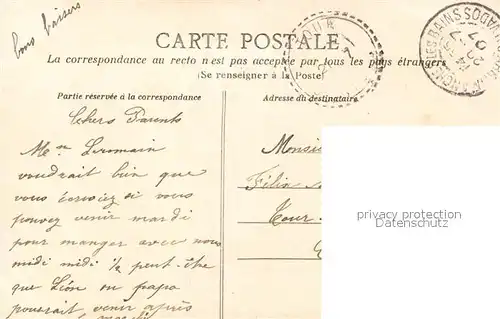 bons baisers
CARTE POSTALE
La correspondance au recto n'est pas acceptée par tous les pays étrangers
(Se renseigner à la Poste)
Partie réservée à la correspondance
Adresse du destinataire
Chers Parents
Me
voudrait bien que
vous écriviez si vous
pouvez venir mardi
pour manger avec nous
midi midi ½ peut-être
que Léon ou papa
pourrait venir après
Monsi
Félix
Cour
BAINS
privacy protection
Datenschutz